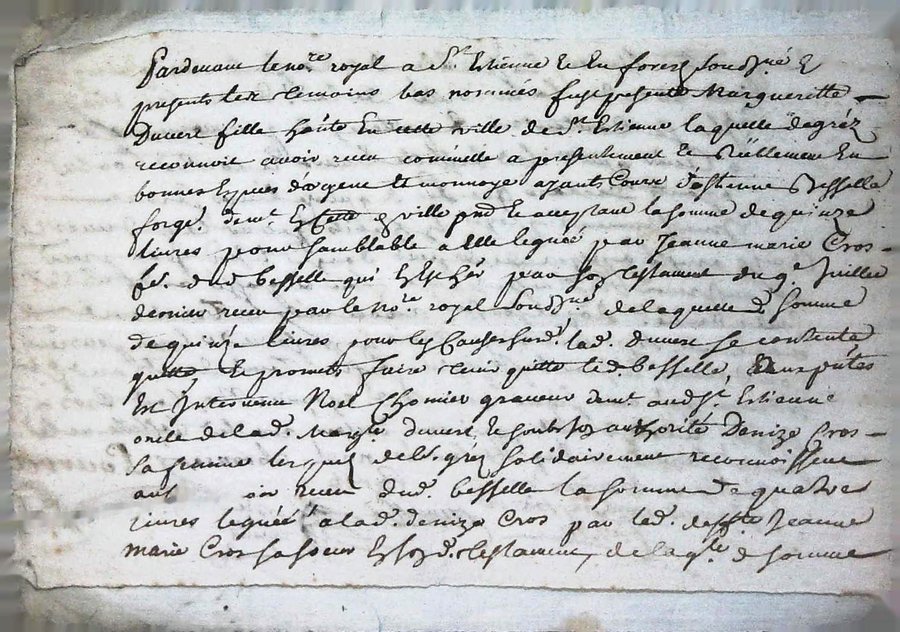 Pardevant le no.re royal a S.t Estienne et en forez soubz.né et
presents les temoins bas nommés fust presente Marguerette
Duvert fille habte en cette ville de S.t Estienne laquelle de gréz
reconnoit avoir receu comme elle a presentement et reellement en
bonnes espesses d'argent et monnoye ayants cours d'Estienne Besselle
forg.r dem.t en cette d. ville pnt et acceptant la somme de quinze
livres pour samblable a elle leguée par Jeanne marie Cros
fe. dud. besselle qui par son testament du 9.e Juillet
dernier receu par le no.re royal soubz.né de laquelle d. somme
de quinze livres pour les causes surd. lad. duvert se contente
quitte et promet faire tenir quitte led. besselle,
Est Intervenu Noel Chomier graveur dem.t aud. S.t Estienne
oncle de lad. Marg.te duvert et soubs son authorité Denize Cros
sa femme lesquels de leur gréz solidairement reconnoissent
avoir receu dud. besselle la somme de quatre
livres leguée a lad. denize Cros par lad. deffte Jeanne
marie Cros sa soeur en son d. testament, de laq.le d. somme